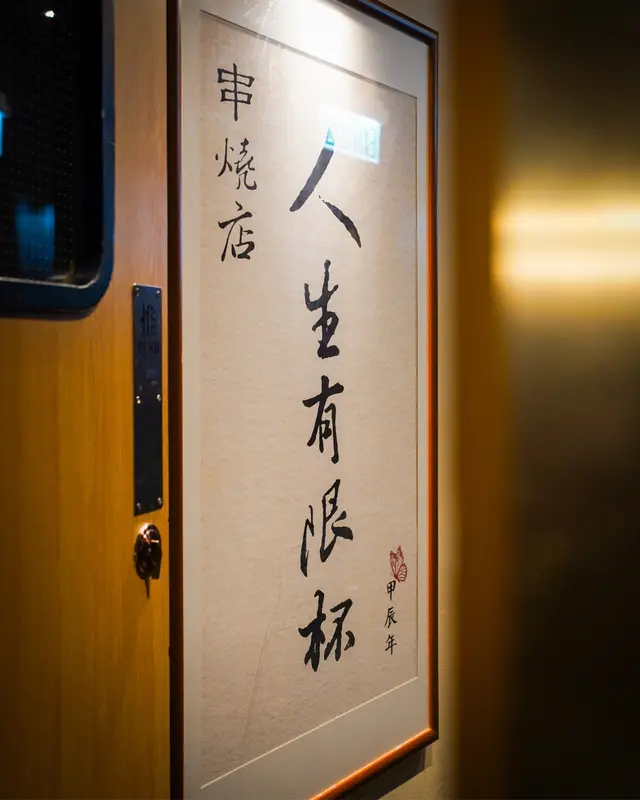 推
串燒店
人生有限杯
甲辰年